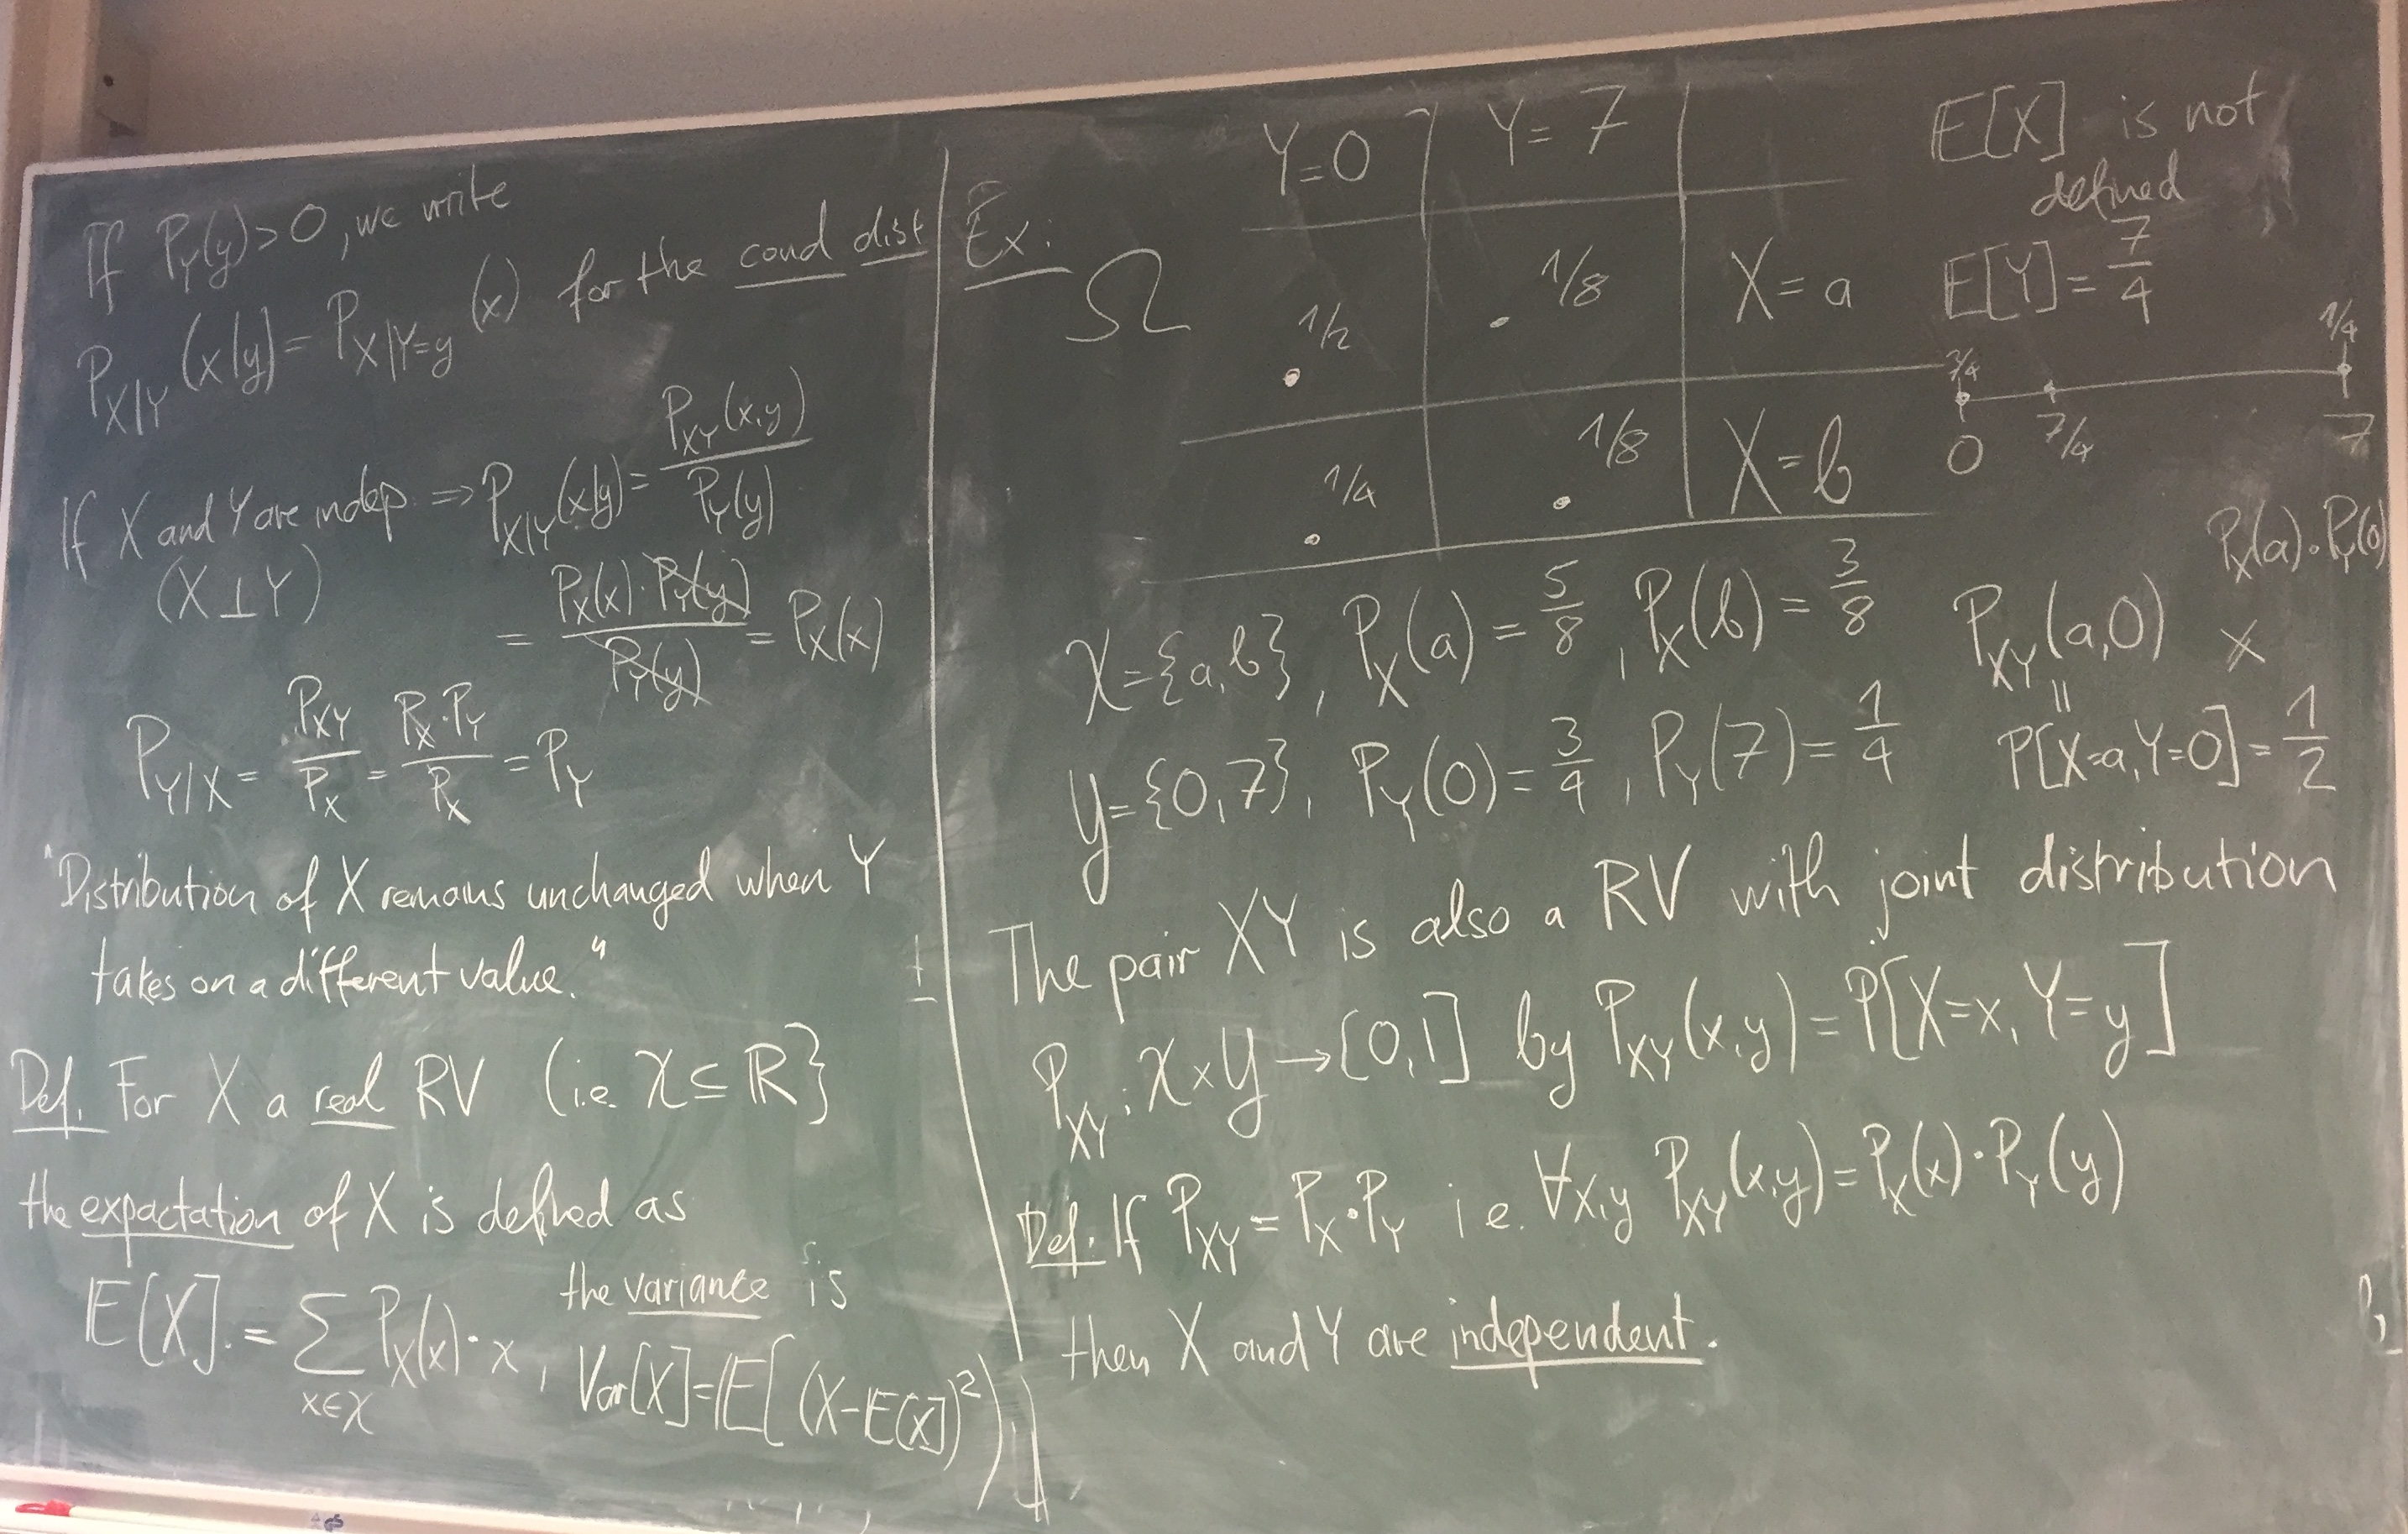 If P_Y(y)>0, we write
P_{X|Y}(x|y) = P_{X|Y=y}(x) for the cond dist
If X and Y are indep. ⇒ P_{X|Y}(x|y) = P_{XY}(x,y) / P_Y(y)
(X⊥Y)
= P_X(x)·P_Y(y) / P_Y(y) = P_X(x)
P_{Y|X} = P_{XY} / P_X = P_X·P_Y / P_X = P_Y
"Distribution of X remains unchanged when Y
takes on a different value."
Def. For X a real RV (i.e. 𝒳 ⊆ ℝ}
the expactation of X is defined as
𝔼[X] := ∑_{x∈𝒳} P_X(x)·x,
the variance is
Var[X] = 𝔼[(X-𝔼[X])²]
Ex:
Ω
Y=0 Y=7
1/2 1/8 X=a
1/4 1/8 X=b
𝔼[X] is not
defined
𝔼[Y] = 7/4
3/4 1/4
0 7/4 7
𝒳={a,b}, P_X(a) = 5/8, P_X(b) = 3/8
𝒴={0,7}, P_Y(0) = 3/4, P_Y(7) = 1/4
P_X(a)·P_Y(0)
P_{XY}(a,0) ×
||
P[X=a,Y=0] = 1/2
The pair XY is also a RV with joint distribution
P_{XY}: 𝒳×𝒴→[0,1] by P_{XY}(x,y) = P[X=x, Y=y]
Def. If P_{XY} = P_X·P_Y i.e. ∀x,y P_{XY}(x,y) = P_X(x)·P_Y(y)
then X and Y are independent.